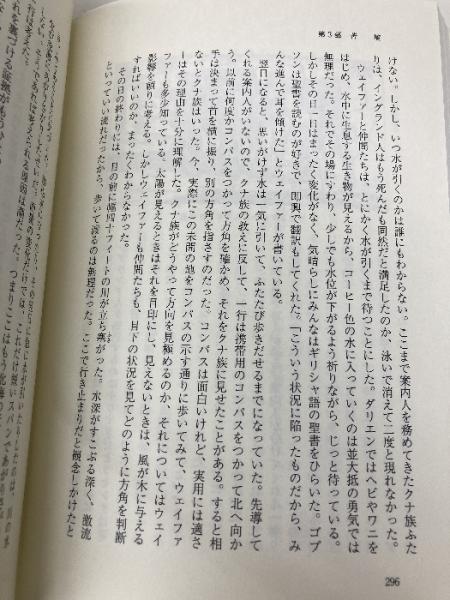 第3部 苦 境
けない。しかし、いつ水が引くのかは誰にもわからない。ここまで案内人を務めてきたクナ族ふた
りは、イングランド人はもう死んだも同然だと満足したのか、泳いで消えて二度と現れなかった。
ウェイファーと仲間たちは、とにかく水が引くまで待つことにした。ダリエンではヘビやワニを
はじめ、水中に生息する生き物が見えるから、コーヒー色の水に入っていくのは並大抵の勇気では
無理だった。それでその場にすわり、少しでも水位が下がるよう祈りながら、じっと待っている。
しかしその日一日はまったく変化がなく、気晴らしにみんなはギリシャ語の聖書をひらいた。ゴプ
ソンは聖書を読むのが好きで、即興で翻訳もしてくれた。「こういう状況に陥ったものだから、み
んな進んで耳を傾けた」とウェイファーが書いている。
翌日になると、思いがけず水は一気に引いて、ふたたび歩きだせるまでになっていた。先導して
くれる案内人がいないので、クナ族の教えに反して、一行は携帯用のコンパスをつかって北へ向か
う。以前に何度かコンパスをつかって方角を確かめ、それをクナ族に見せたことがある。すると相
手は決まって首を横に振り、別の方角を指さすのだった。コンパスは面白いけれど、実用には適さ
ないとクナ族はいった。今、実際にこの未開の地をコンパスの示す通りに歩いてみて、ウェイファ
ーはその理由を十分に理解した。クナ族がどうやって方向を見極めるのか、それについてはウェイ
ファーも多少知っている。太陽が見えるときはそれを目印にし、見えないときは、風が木に与える
影響を頼りに考える。しかしウェイファーも仲間たちも、目下の状況を見てどのように方角を判断
すればいいのか、まったくわからなかった。
その日の終わりには、目の前に幅四十フィートの川が立ち塞がった。水深がすこぶる深く、激流
といっていい流れだったから、歩いて渡るのは無理だった。ここで行き止まりだと観念しかけたと
296